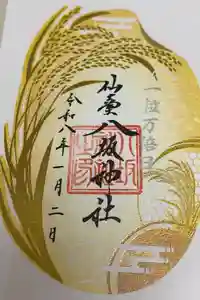 一粒万倍日
仙臺八坂神社
令和八年一月二日